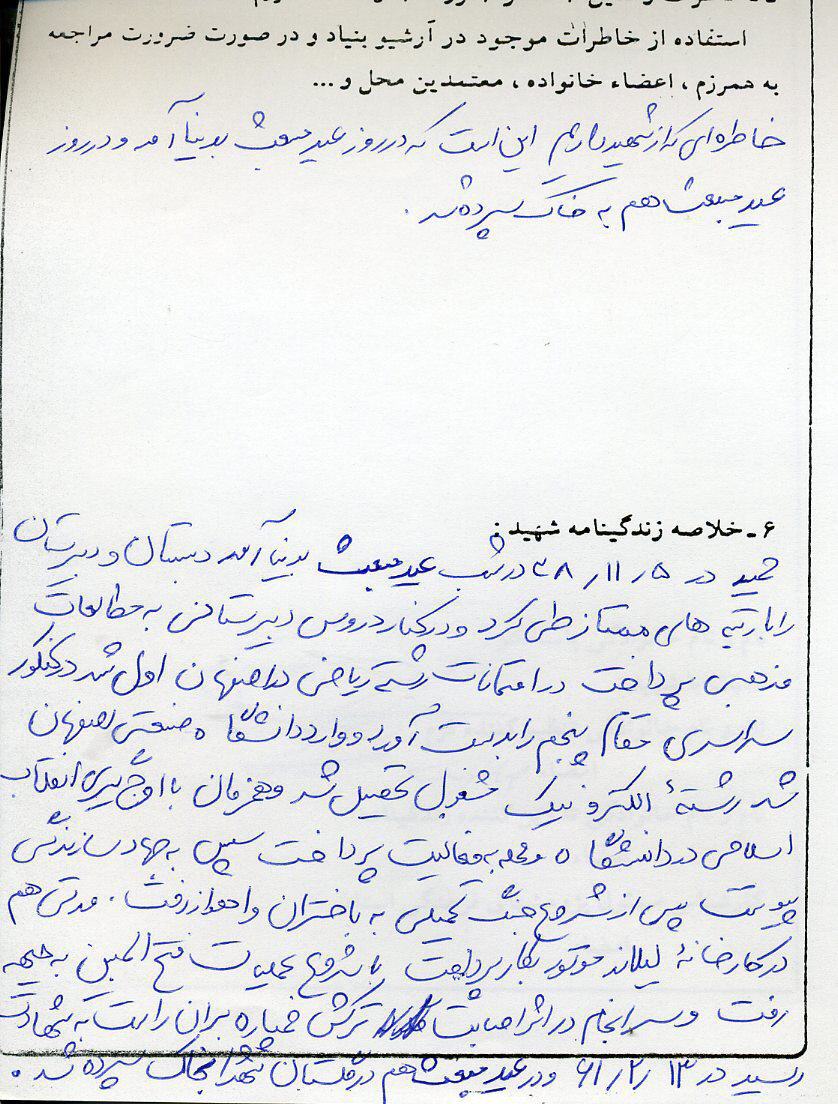 استفاده از خاطرات موجود در آرشیو بنیاد و در صورت ضرورت مراجعه
به همرزم ، اعضاء خانواده ، معتمدین محل و ...
خاطره‌ای که از شهید داریم این است که در روز عید مبعث بدنیا آمد و در روز
عید مبعث هم به خاک سپرده شد .
۶ - خلاصه زندگینامه شهید :
حمید در ۵ ر ۱۱ ر ۳۸ در شب عید مبعث بدنیا آمد دبستان و دبیرستان
را با رتبه های ممتاز طی کرد و در کنار دروس دبیرستانی به مطالعات
مذهبی پرداخت در امتحانات رشته ریاضی در اصفهان اول شد در کنکور
سراسری مقام پنجم را بدست آورد و وارد دانشگاه صنعتی اصفهان
شد رشتهٔ الکترونیک مشغول تحصیل شد و همزمان با اوج گیری انقلاب
اسلامی در دانشگاه و محله به فعالیت پرداخت سپس به جهاد سازندگی
پیوست پس از شروع جنگ تحمیلی به باختران و اهواز رفت . مدتی هم
در کارخانهٔ لیلاند موتور بکار پرداخت با شروع عملیات فتح المبین به جبهه
رفت و سرانجام در اثر اصابت ترکش خمپاره به ران راست به شهادت
رسید در ۱۳ ر ۲ ر ۶۱ و در عید مبعث هم در گلستان شهدا بخاک سپرده شد .